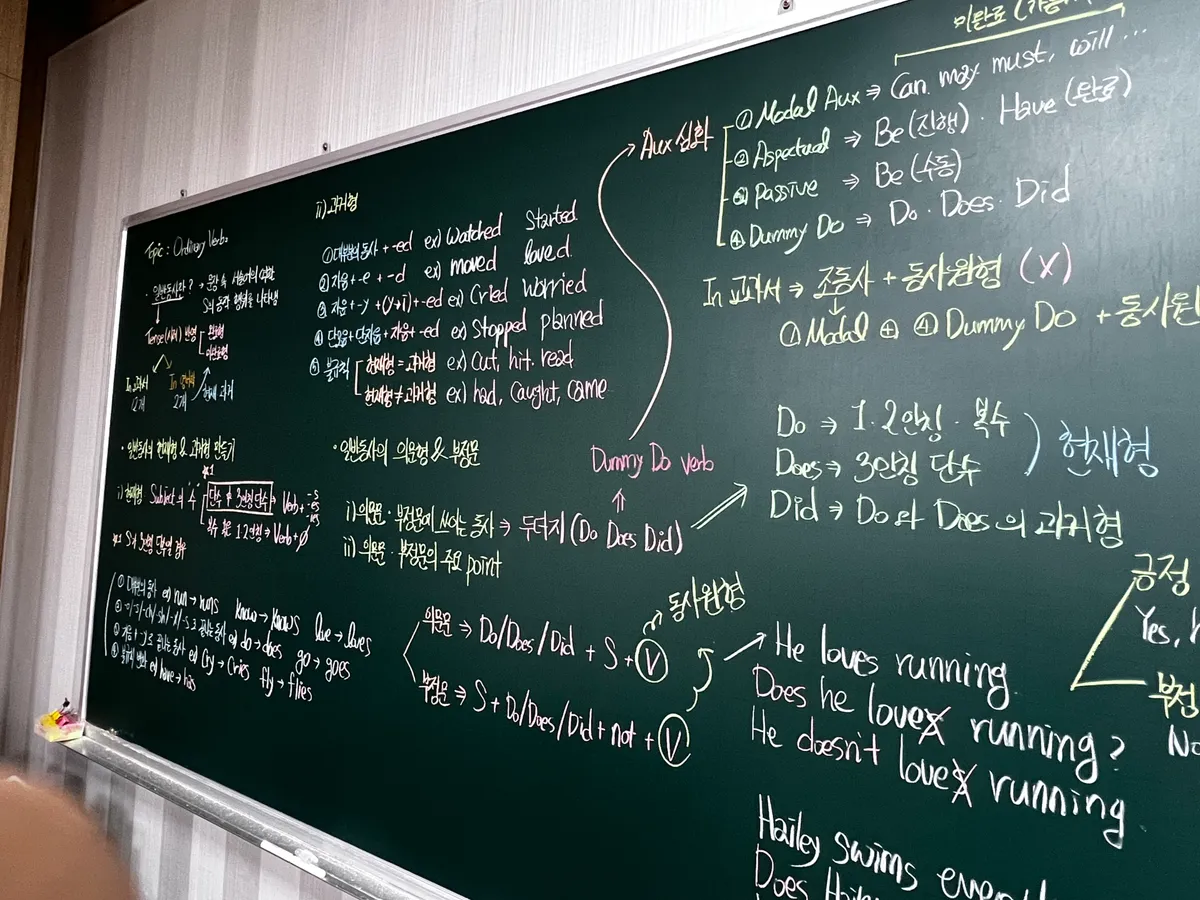 Topic : Ordinary Verbs
· 일반동사란? → 문장 속 서술어의 역할
S의 동작 행위를 나타냄
Tense(시제) 반영
완료형
미완료형
In 교과서
2개
In
2개
현재 과거
· 일반동사의 현재형 & 과거형 만들기
i) 현재형 Subject의 수
*1
단수 ≠ 3인칭 단수 → Verb + -s -es -ies
복수 혹은 1·2인칭 ⇒ Verb+∅
*1 S가 3인칭 단수일 경우
① 대부분의 동사 ex) run → runs know → knows love → loves
② -o/-s/-ch/-sh/-x/-s로 끝나는 동사 ex) do → does go → goes
③ 자음 + y로 끝나는 동사 ex) cry → cries fly → flies
④ 불규칙 변화 ex) have → has
ii) 과거형
① 대부분의 동사 + -ed ex) Watched Started
② 자음 + -e + -d ex) moved loved
③ 자음 + -y + (y→i) + -ed ex) Cried Worried
④ 단모음 + 단자음 + 자음 + -ed ex) Stopped planned
⑤ 불규칙
현재형 = 과거형 ex) Cut, hit, read
현재형 ≠ 과거형 ex) had, caught, came
· 일반동사의 의문형 & 부정문
i) 의문문 · 부정문에 쓰이는 동사 ⇒ 두더지 (Do Does Did)
ii) 의문문 · 부정문의 주요 point
의문문 ⇒ Do/Does/Did + S + V
→ 동사원형
부정문 ⇒ S + Do/Does/Did + not + V
Dummy Do verb
Aux 심화
미완료
① Modal Aux ⇒ Can may must, will ...
② Aspectual ⇒ Be (진행) · Have (완료)
③ Passive ⇒ Be (수동)
④ Dummy Do ⇒ Do · Does · Did
In 교과서 ⇒ 조동사 + 동사원형 (X)
① Modal ⊕ ④ Dummy Do + 동사원
Do ⇒ 1·2인칭 · 복수
Does ⇒ 3인칭 단수
현재형
Did ⇒ Do와 Does의 과거형
긍정
Yes, h
부정
No
He loves running
Does he loves running?
He doesn't loves running
Hailey swims every
Does Hailey